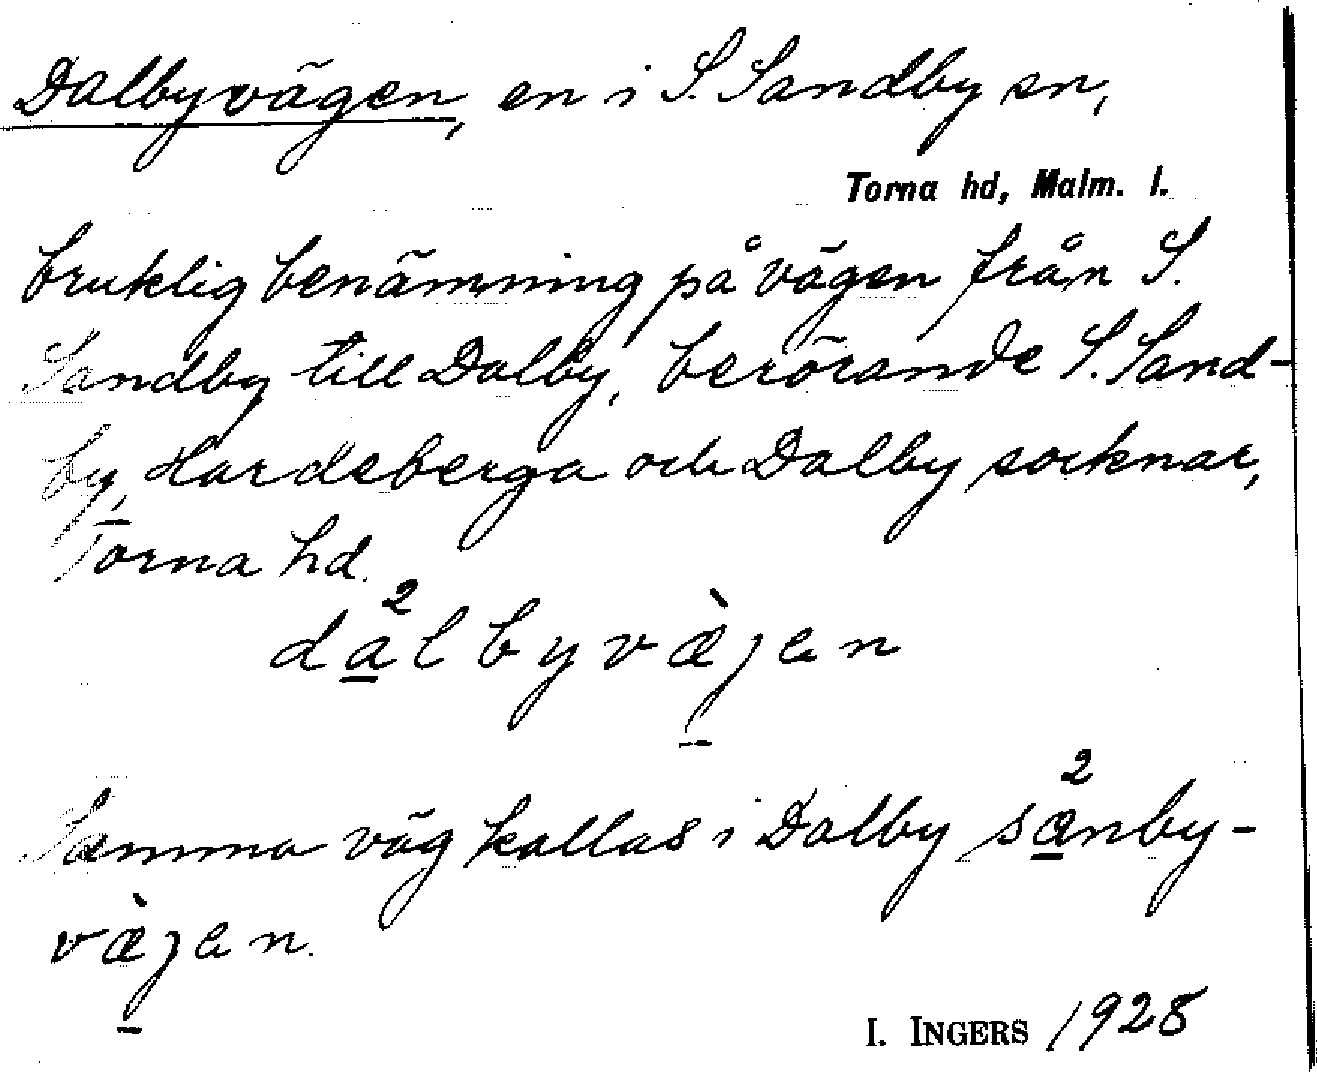 Dalbyvägen, en i S. Sandby sn,
Torna hd, Malm. l.
bruklig benämning på vägen från S.
Sandby till Dalby, berörande S. Sand-
by, Hardeberga och Dalby socknar,
Torna hd.
da̲²lbyvæ̀jen
Samma väg kallas i Dalby sæ̲²nby-
væ̀jen.
I. INGERS 1928